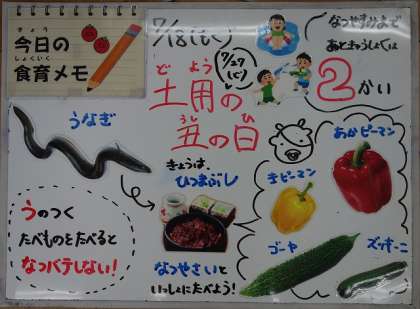 きょう
今日の
しょくいく
食育メモ
7/18(七)
7/27
(七)
なつやすみまで
あときゅうしょくは
2かい
ど よう
土用の
うし ひ
丑の日
うなぎ
きょうは、
ひつまぶし
うのつく
たべものをたべると
なつバテしない!
なつやさいと
いっしょにたべよう!
あかピーマン
きピーマン
ゴーヤ
ズッキーニ